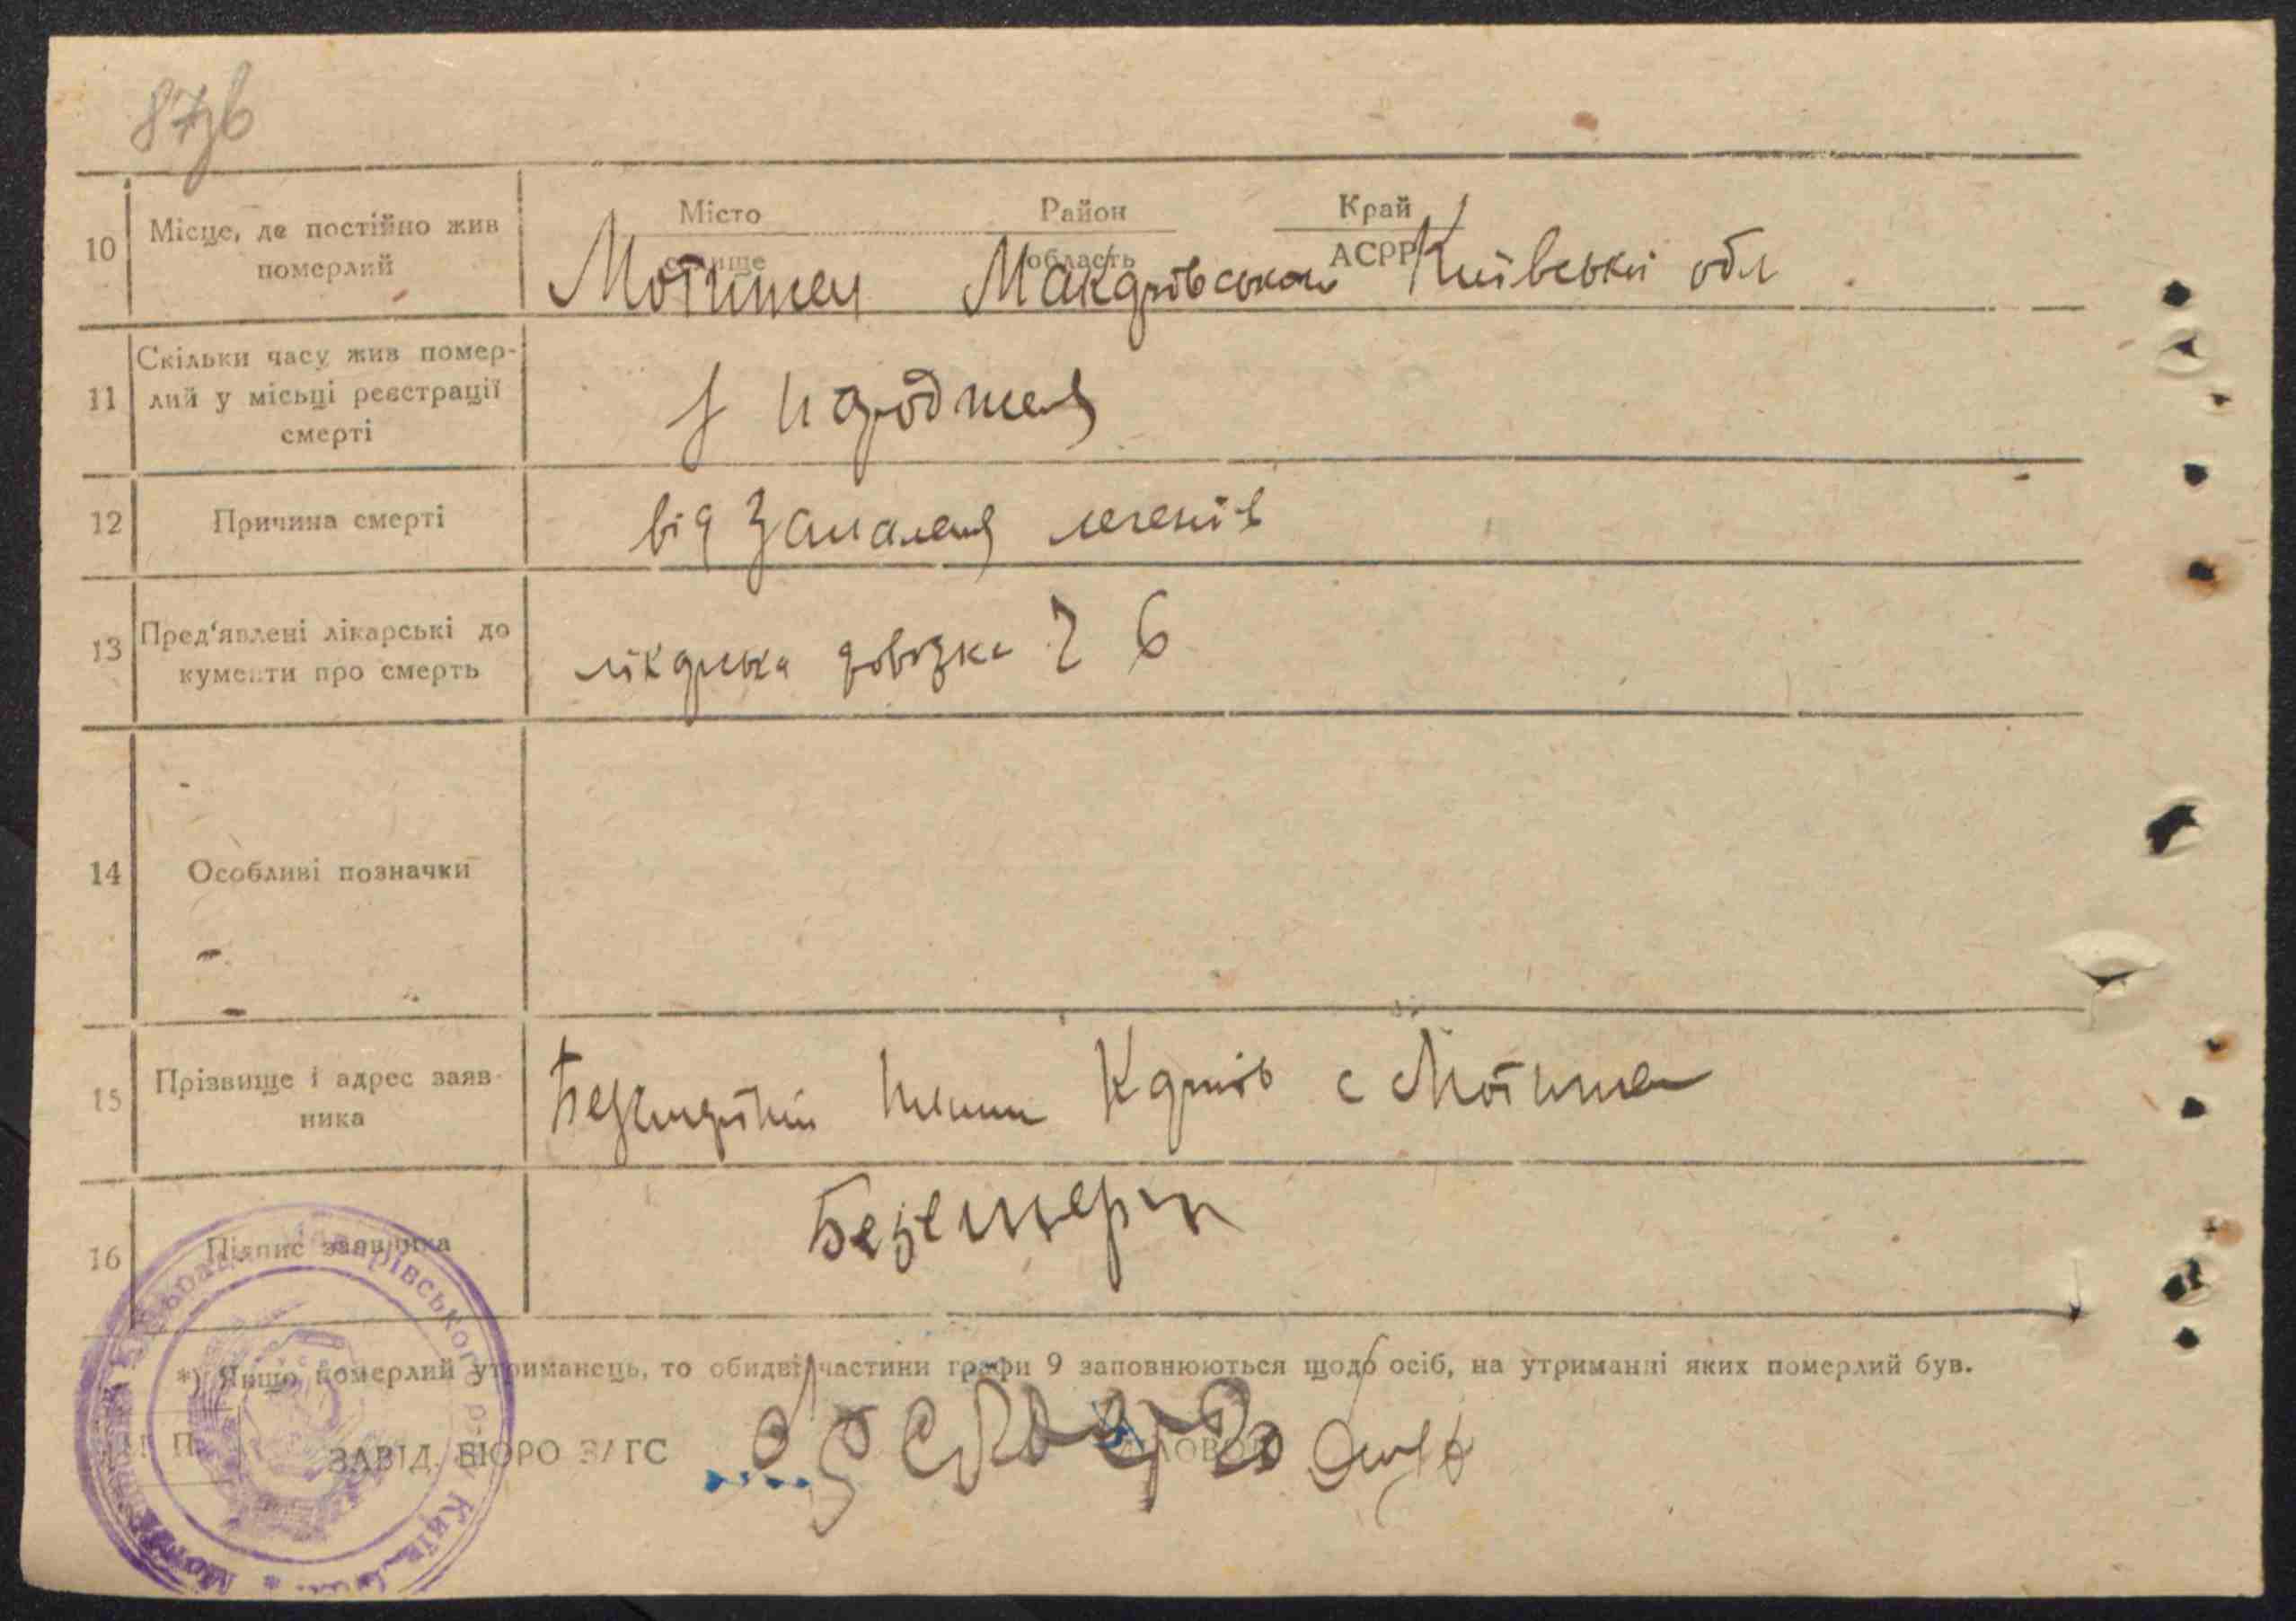 87зв
10 Місце, де постійно жив померлий
Місто Район Край
селище область АСРР
Мотижен Макарівського Київської обл
11 Скільки часу жив помер-
лий у місьці реєстрації
смерті
з народження
12 Причина смерті
від запалення легенів
13 Пред'явлені лікарські до
кументи про смерть
лікарська довідка 6
14 Особливі позначки
15 Прізвище і адрес заяв-
ника
с Мотижен
16 Підпис заявника
Безсмерт
*) Якщо померлий утриманець, то обидві частини графи 9 заповнюються щодо осіб, на утриманні яких померлий був.
М. П.
ЗАВІД. БЮРО ЗАГС
Макарівського р-ну Київ